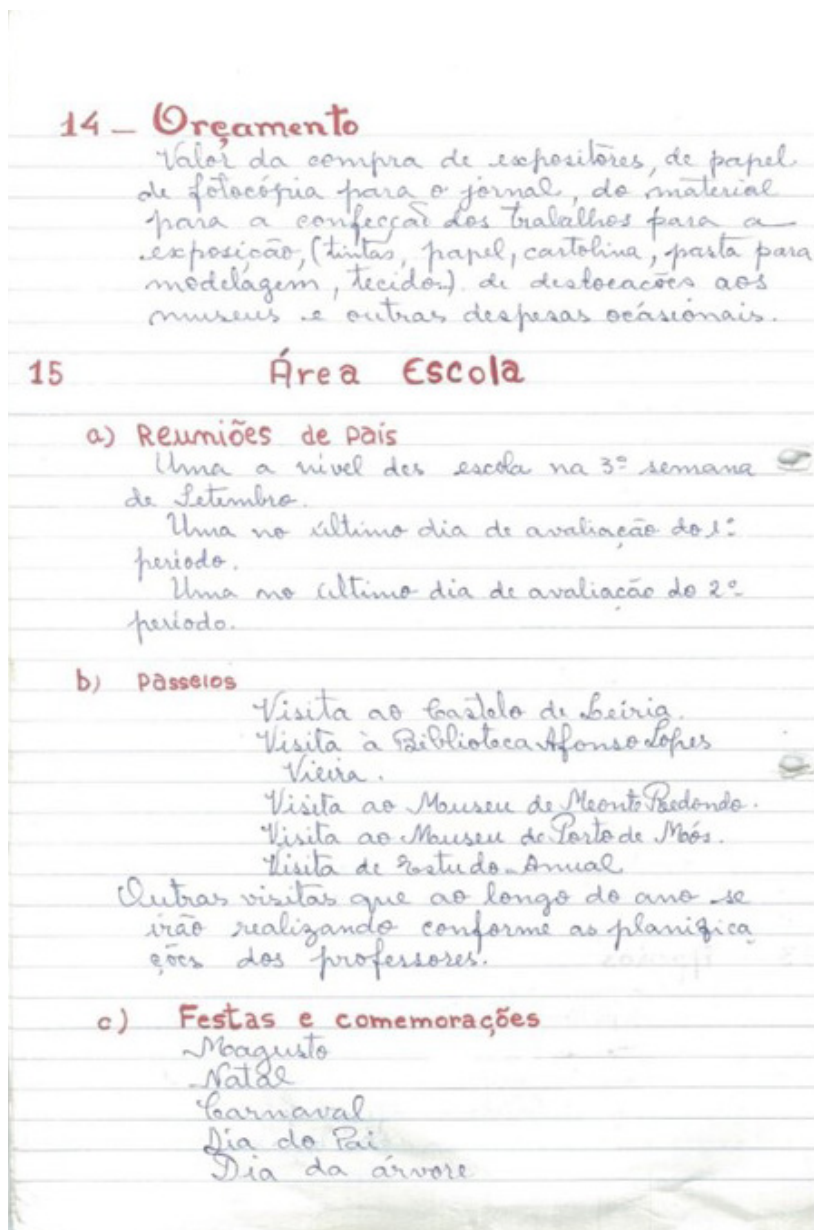 14 - Orçamento
Valor da compra de expositores, de papel
de fotocópia para o jornal, do material
para a confecção dos trabalhos para a
exposição, (tintas, papel, cartolina, pasta para
modelagem, tecidos) de deslocações aos
museus e outras despesas ocasionais.
15 Área Escola
a) Reuniões de pais
Uma a nível des escola na 3ª semana
de Setembro.
Uma no último dia de avaliação do 1º
período.
Uma no último dia de avaliação do 2º
período.
b) Passeios
Visita ao Castelo de Leiria.
Visita à Biblioteca Afonso Lopes
Vieira.
Visita ao Museu de Monte Redondo.
Visita ao Museu de Porto de Mós.
Visita de Estudo Anual
Outras visitas que ao longo do ano se
irão realizando conforme as planifica
ções dos professores.
c) Festas e comemorações
Magusto
Natal
Carnaval
Dia do Pai
Dia da árvore